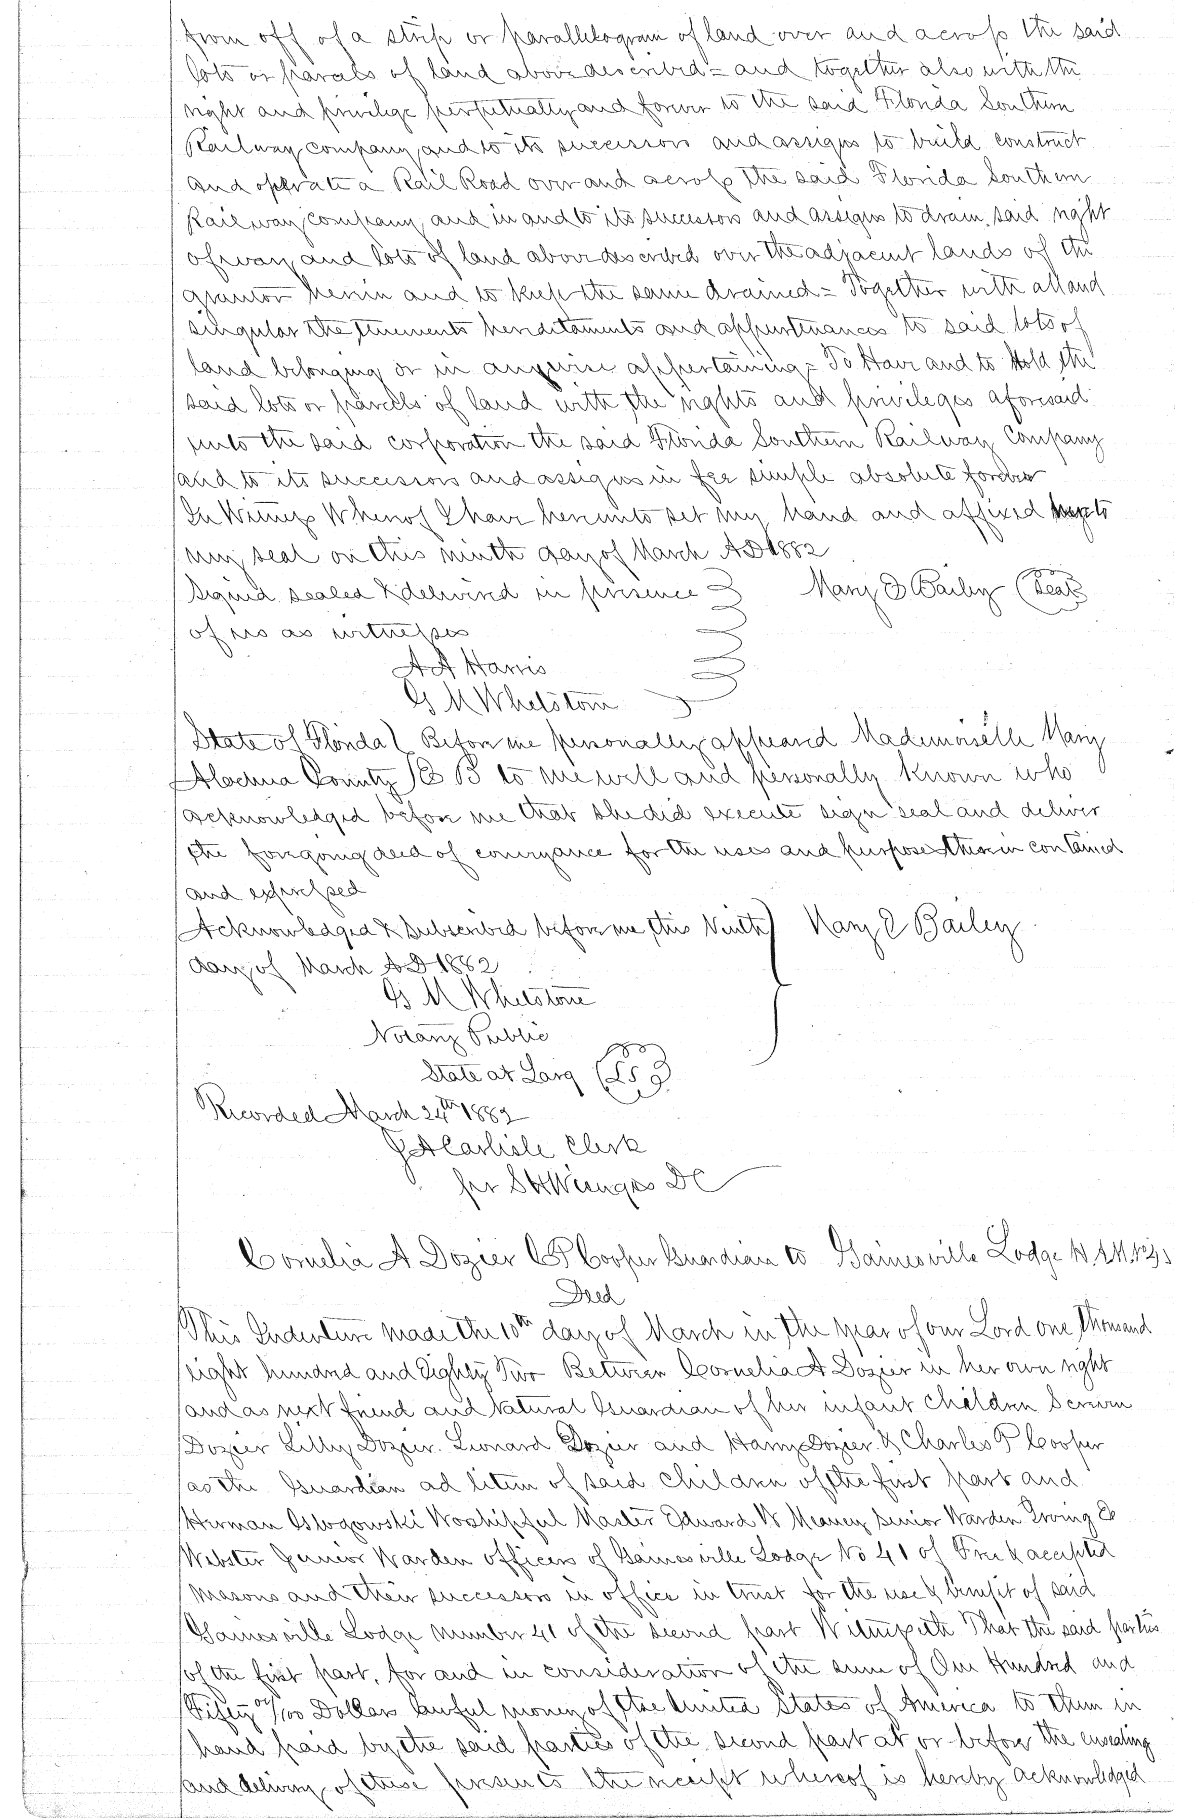 from off of a strip or parallelogram of land over and across the said
lots or parcels of land above described = and together also with the
right and privilege perpetually and forever to the said Florida Southern
Railway company and to its successors and assigns to build construct
and operate a Rail Road over and across the said Florida Southern
Railway company and in and to its successors and assigns to drain said right
of way and lots of land above described over the adjacent lands of the
grantor herein and to keep the same drained = Together with all and
singular the tenements hereditaments and appurtenances to said lots of
land belonging or in anywise appertaining = To Have and to Hold the
said lots or parcels of land with the rights and privileges aforesaid
unto the said corporation the said Florida Southern Railway Company
and to its successors and assigns in fee simple absolute forever
In Witness Whereof I have hereunto set my hand and affixed
my seal on this ninth day of March AD 1882
Signed sealed & delivered in presence Mary E Bailey (Seal)
of us as witnesses
A A Harris
G M Whetstone
State of Florida Before me personally appeared Mademoiselle Mary
Alachua County E B to me well and personally known who
acknowledged before me that she did execute sign seal and deliver
the foregoing deed of conveyance for the uses and purposes therein contained
and expressed
Acknowledged & subscribed before me this Ninth Mary E Bailey
day of March AD 1882
G M Whetstone
Notary Public
State at Larg (LS)
Recorded March 24th 1882
J A Carlisle Clerk
per S H Wienges DC
Cornelia A Dozier C P Cooper Guardian to Gainesville Lodge
Deed
This Indenture made the 10th day of March in the year of our Lord one thousand
eight hundred and Eighty Two Between Cornelia A Dozier in her own right
and as next friend and Natural Guardian of her infant children Screven
Dozier Lilly Dozier. Leonard Dozier and Harry Dozier & Charles P Cooper
as the Guardian ad litem of said children of the first part and
Herman Glogowski Woshipful Master Edward W Meaney Senior Warden Irving E
Webster Junior Warden officers of Gainesville Lodge No 41 of Free & accepted
Masons and their successors in office in trust for the use & benefit of said
Gainesville Lodge number 41 of the second part Witnesseth That the said parties
of the first part, for and in consideration of the sum of One Hundred and
Fifty 00/100 Dollars lawful money of the United States of America to them in
hand paid by the said parties of the second part at or before the ensealing
and delivery of these presents the receipt whereof is hereby acknowledged